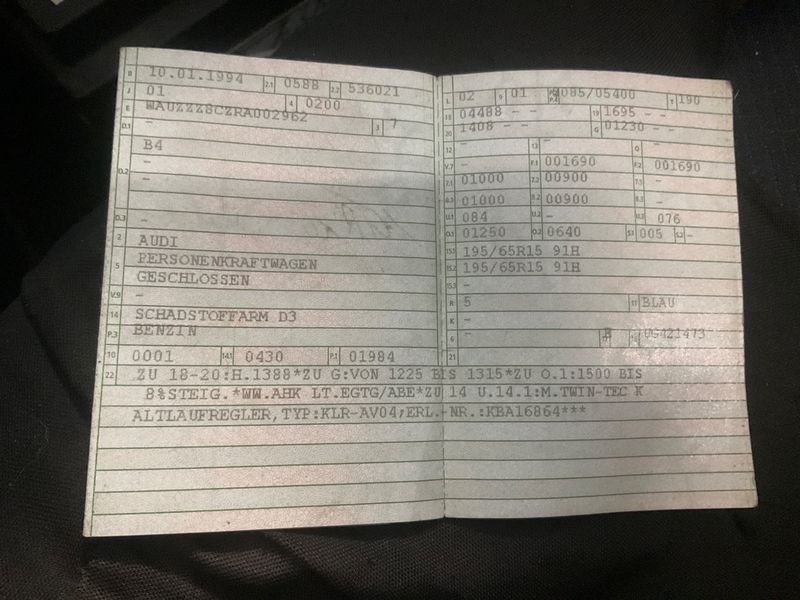 B 10.01.1994 2.1 0588 2.2 536021
J 01 4 0200
E WAUZZZ8CZRA002962 3 7
D.1 -
B4
D.2 -
-
D.3 -
2 AUDI
5 PERSONENKRAFTWAGEN
GESCHLOSSEN
V.9 -
14 SCHADSTOFFARM D3
P.3 BENZIN
10 0001 14.1 0430 P.1 01984
L 02 9 01 P.2 P.4 085/05400 T 190
18 04488 - - 19 1695 - -
20 1408 - - G 01230 - -
12 - 13 - Q -
V.7 - F.1 001690 F.2 001690
7.1 01000 7.2 00900 7.3 -
8.1 01000 8.2 00900 8.3 -
U.1 084 U.2 - U.3 076
O.1 01250 O.2 0640 S.1 005 S.2 -
15.1 195/65R15 91H
15.2 195/65R15 91H
15.3 -
R 5 11 BLAU
K -
6 -
UG421473
21
22 ZU 18-20:H.1388*ZU G:VON 1225 BIS 1315*ZU O.1:1500 BIS
8%STEIG.*WW.AHK LT.EGTG/ABE*ZU 14 U.14.1:M.TWIN-TEC K
ALTLAUFREGLER,TYP:KLR-AV04;ERL.-NR.:KBA16864***